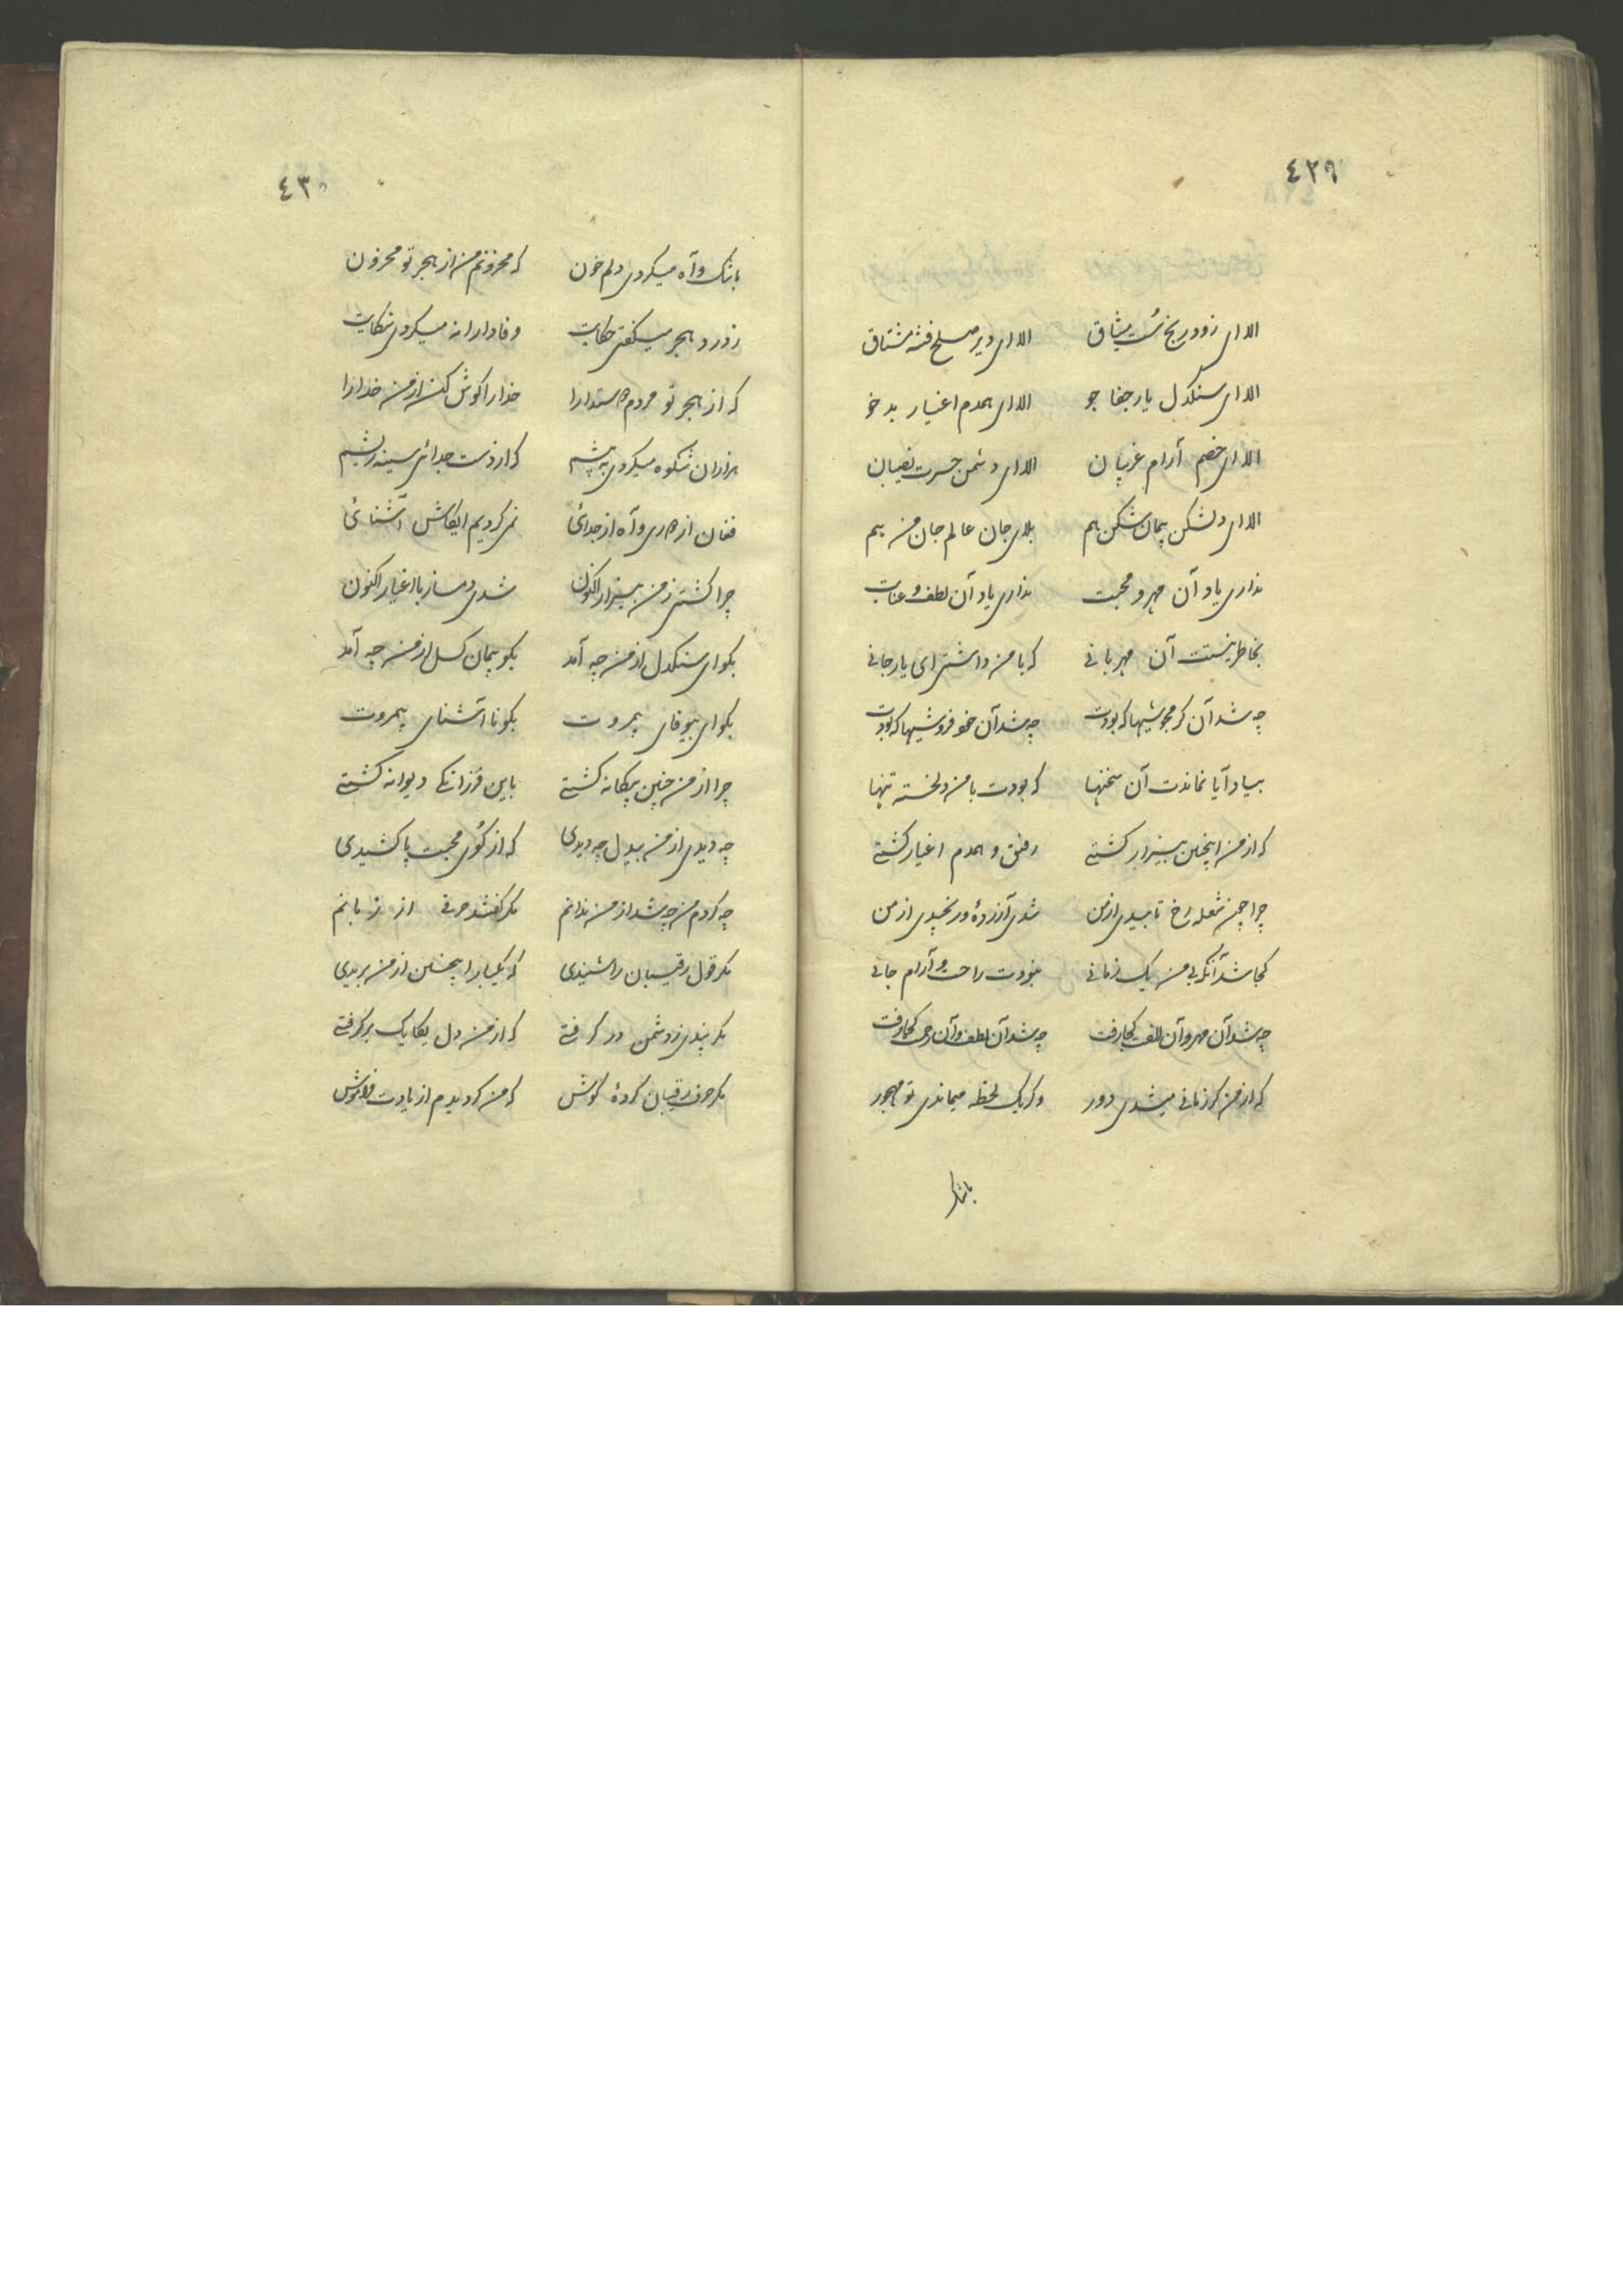 ٤٢٩
الا ای زود رنج سست میثاق الا ای دیر صلح فتنه مشتاق
الا ای سنکدل یار جفا جو الا ای همدم اغیار بد خو
الا ای خصم آرام غریبان الا ای دشمن حسرت نصیبان
الا ای دلشکن پیمان شکن هم بلای جان عالم جان من هم
نداری یاد آن مهر و محبت نداری یاد آن لطف و عنایت
بخاطر نیستت آن مهربانی که با من داشتی ای یار جانی
چه شد آن کرمجوشیها که بودت چه شد آن خود فروشیها که بودت
بیاد آیا نماندت آن سخنها که بودت با من دلخسته تنها
که از من اینچنین بیزار کشتی رفیق و همدم اغیار کشتی
چرا چون شعله رخ تابیدی از من شدی آزرده و رنجیدی از من
کجا شد آنکه بی من یک زمانی نبودت راحت و آرام جانی
چه شد آن مهر و آن الفت کجا رفت چه شد آن لطف و آن رحمی کجا رفت
که از من کر زمانی میشدی دور و کر یک لحظه میماندی تو مهجور
باشک
٤٣٠
باشک و آه میکردی دلم خون که محزونم من از هجر تو محزون
ز درد هجر میکفتی حکایت وفادارانه میکردی شکایت
که از هجر تو مردم دوستدارا خدا را کوش کن از من خدا را
هزاران شکوه میکردی به پیشم که از دست جدائی سینه ریشم
فغان از دوری و آه از جدائی نمیکردیم ایکاش آشنائی
چرا کشتی ز من بیزار اکنون شدی دمساز با اغیار اکنون
بکو ای سنکدل از من چه آمد بکو پیمان کسل از من چه آمد
بکو ای بیوفای بیمروت بکو نا آشنای بیمروت
چرا از من چنین بیکانه کشتی باین فرزانکی دیوانه کشتی
چه دیدی از من بیدل چه دیدی که از کوی محبت پا کشیدی
چه کردم من چه شد از من ندانم مکر کفتند حرفی از زبانم
مکر قول رقیبان را شنیدی که یکبار اینچنین از من بریدی
مکر پندی ز دشمن در کرفتی که از من دل یکایک بر کرفتی
مکر حرف رقیبان کردهٔ کوش که من کردیدم از یادت فراموش